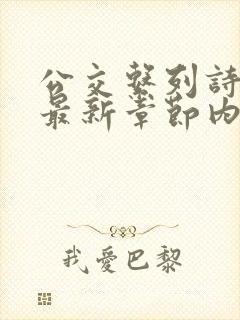 公交繫列詩
最新章節內
我愛巴黎